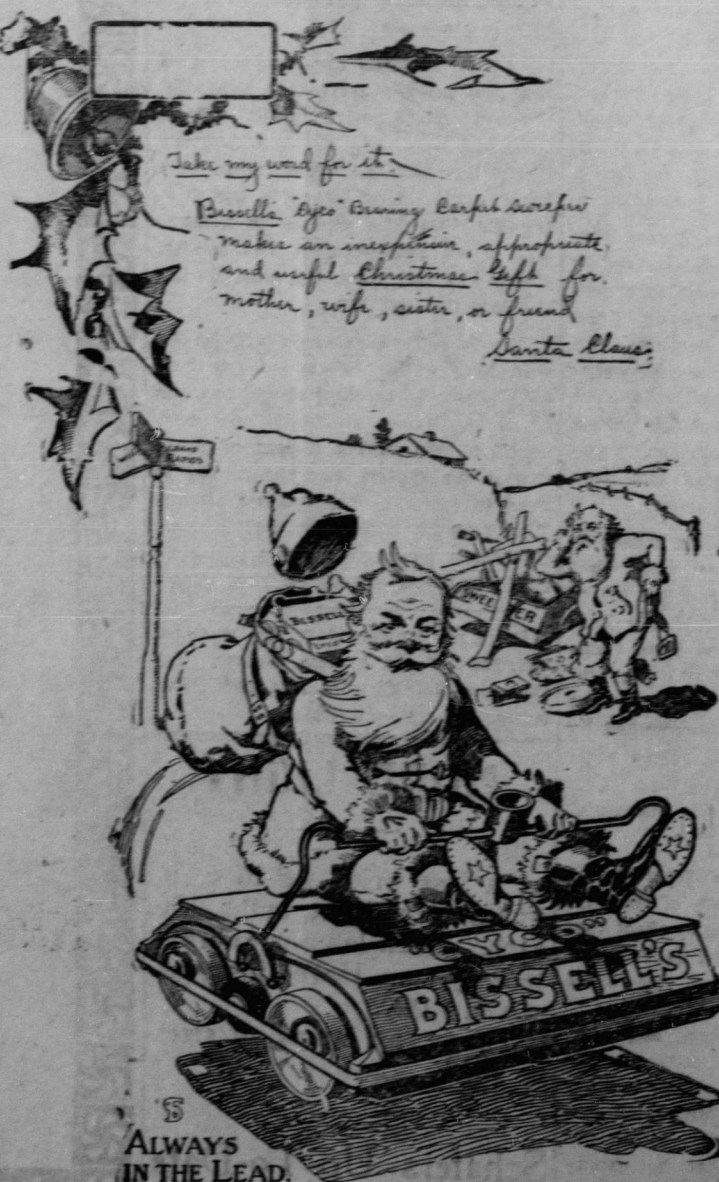 Take my word for it.
Bissell's "Cyco" Bearing Carpet Sweeper
makes an inexpensive, appropriate,
and useful Christmas Gift for
mother, wife, sister, or friend
Santa Claus.
GRAND
RAPIDS
BISSELL
"CYCO"
BISSELL'S
ALWAYS
IN THE LEAD.